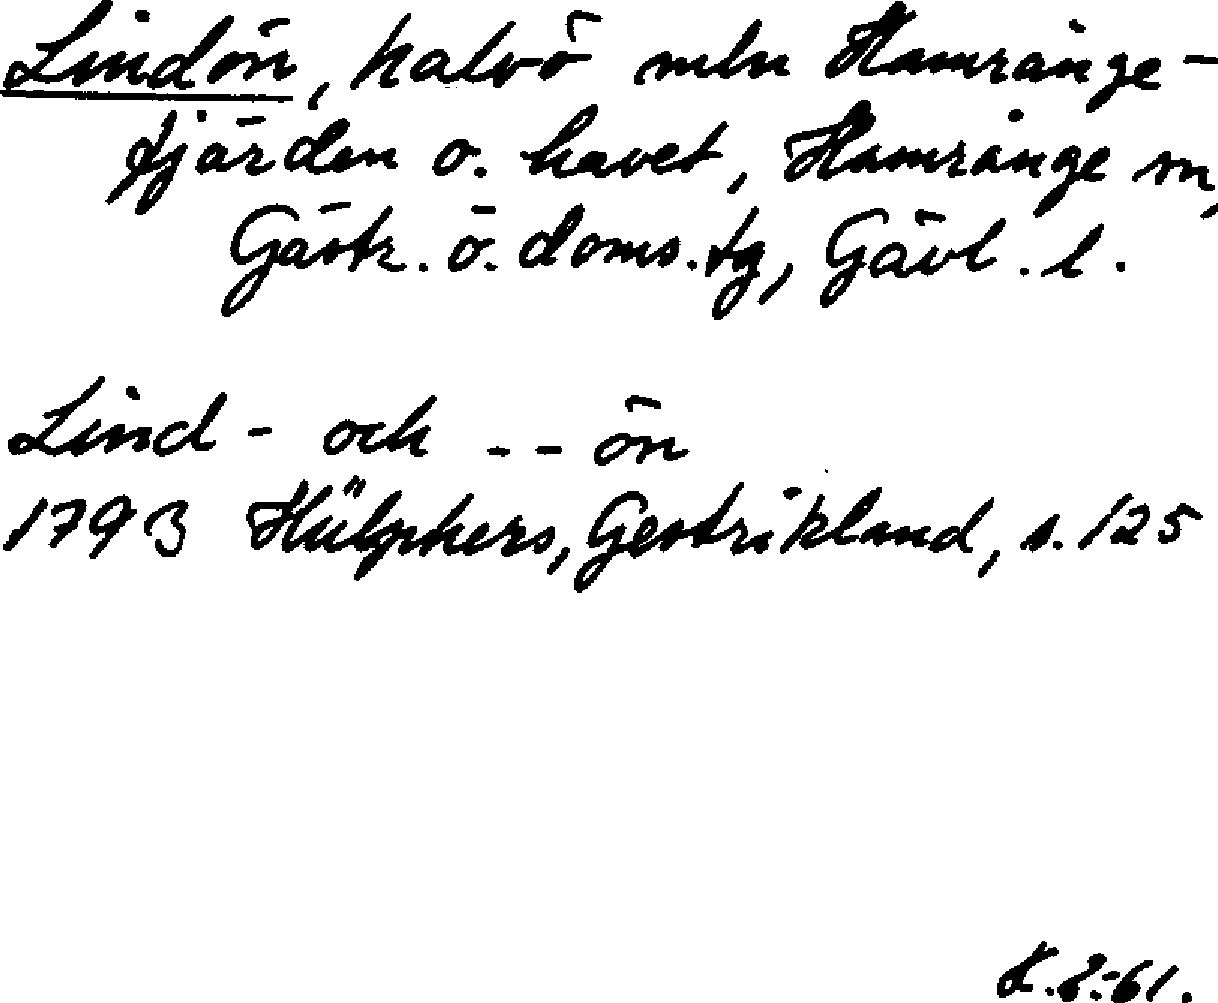 Lindön, halvö mln Hamrånge-
fjärden o. havet, Hamrånge sn,
Gästr. ö. doms.tg, Gävl. l.
Lind- och -- ön
1793 Hülphers, Gestrikland, s. 125
K.8:61.